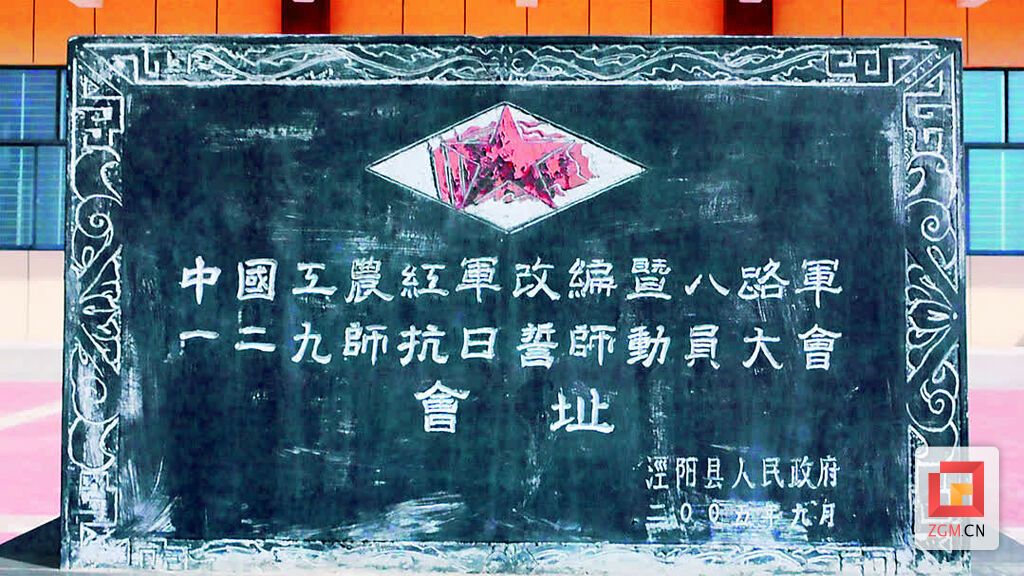 中國工農紅軍改編暨八路軍
一二九師抗日誓師動員大會
會址
泾阳县人民政府
二00五年九月
ZGM.CN